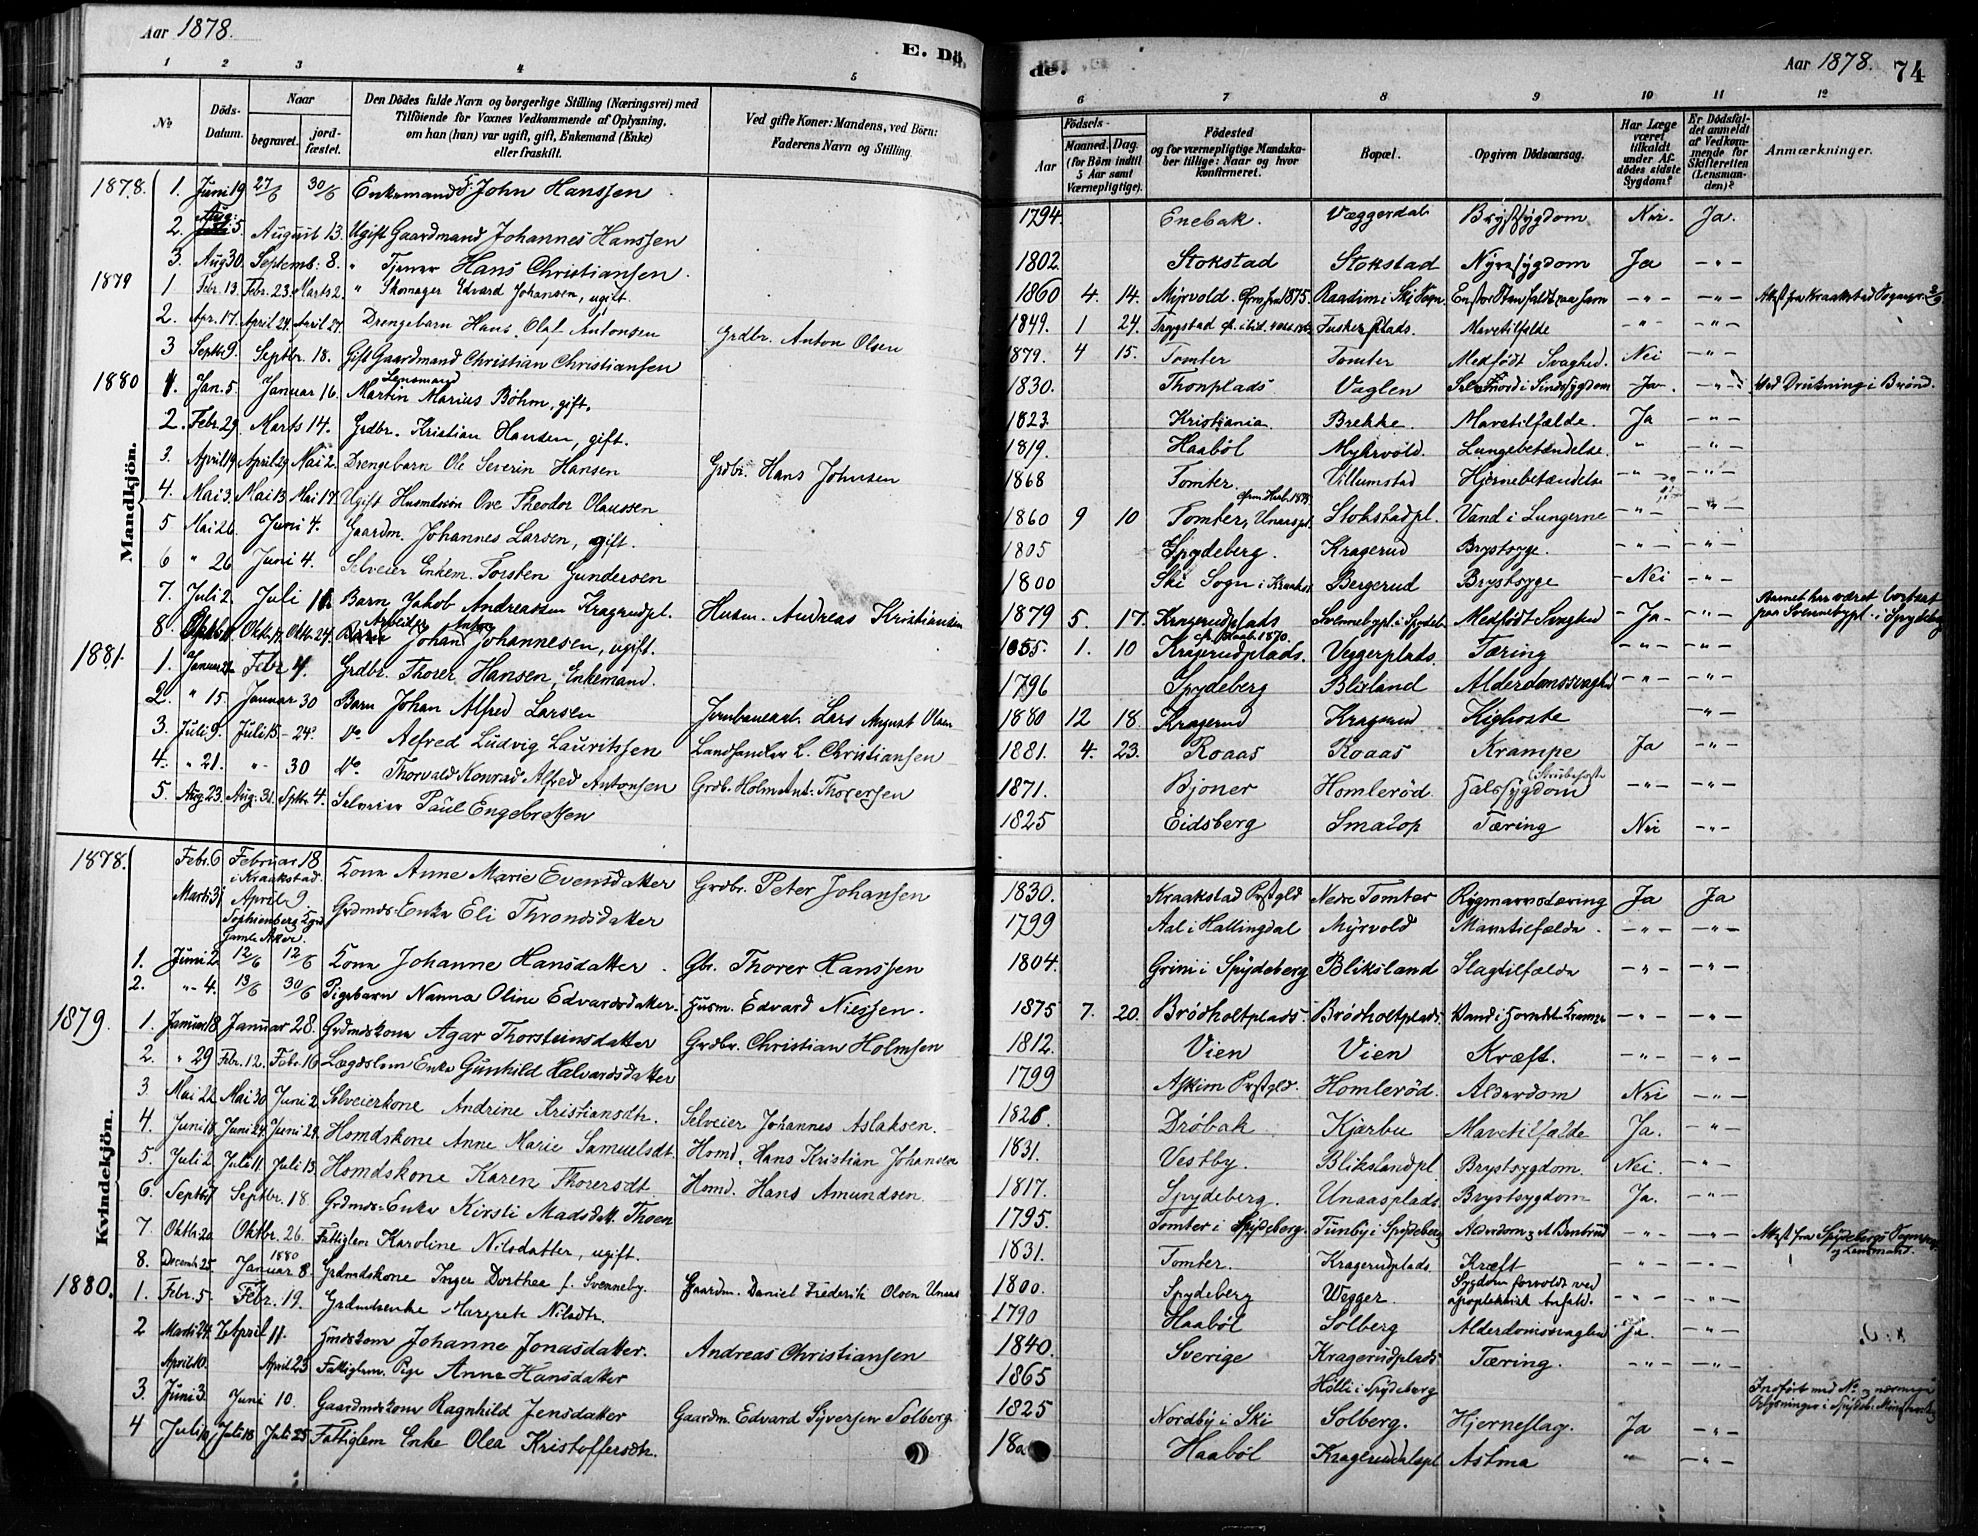 Aar 1878.
E. Dö
1 2 3 4 5
№
Döds-
Datum.
Naar
begravet.
jord-
fæstet.
Den Dödes fulde Navn og borgerlige Stilling (Næringsvei) med
Tilföiende for Voxnes Vedkommende af Oplysning,
om han (hun) var ugift, gift, Enkemand (Enke)
eller fraskilt.
Ved gifte Koner: Mandens, ved Börn:
Faderens Navn og Stilling.
Mandkjön.
1878. 1. Juni 19 27/6 30/6 Enkemand John Hanssen
2. Aug: 5. August 13. Ugift Gaardmand Johannes Hanssen
3. Aug 30. Septemb: 8. " Tjener Hans Christiansen.
1879 1 Febr. 13. Febr. 23. Marts 2. " Skomager Edvard Johansen, ugift.
2. Apr. 17. April 24. April 27. Drengebarn Hans Olaf Antonsen Grdbr. Anton Olsen
3 Septbr 9. Septbr. 18. Gift Gaardmand Christian Christiansen
1880 1. Jan. 5 Januar 16. Lensmand Martin Marius Böhm, gift.
2. Febr. 29 Marts 14. Grdbr. Kristian Hansen, gift.
3. April 19. April 29. Mai 2. Drengebarn Ole Severin Hansen Grdbr. Hans Johnsen
4. Mai 3. Mai 13. Mai 17. Ugift Husmdssön Ove Theodor Olaussen
5 Mai 26. Juni 4. Gaardm. Johannes Larsen, gift.
6 " 26 Juni 4. Selveier Enkem. Torsten Gundersen
7. Juli 2. Juli 11. Barn Jakob Andreassen Kragerudpl. Husm. Andreas Kristiansen
8. Oktbr. 17. Oktbr. 24. Arbeider Johan Anton Johannesen, ugift.
1881. 1. Januar Febr 4. Grdbr. Thorer Hansen, Enkemand.
2. " 15. Januar 30 Barn Johan Alfred Larsen Jernbanearb. Lars August Olsen
3. Juli 9. Juli 15 - 24. Do. Alfred Ludvig Lauritssen Landhandler L. Christiansen
4. " 21. " - 30 Do. Thorvald Konrad Alfred Antonsen Grdb. Holm Ant. Thorersen
5. Aug 23. Aug. 31. Sptbr. 4. Selveier Paul Engebretsen
Kvindekjön.
1878. Febr. 6 Februar 18 i Kraakstad. Kone Anne Marie Evensdatter Grdbr. Peter Johansen
Marts 31 April 9. Sophienberg Kgrd Gamle Aker. Grdmds-Enke Eli Throndsdatter
1. Juni 2 12/6 12/6 Kone Johanne Hansdatter. Gbr. Thorer Hanssen
2. "- 4. 13/6 30/6 Pigebarn Nanna Oline Edvardsdatter. Husm. Edvard Nielsen.
1879. 1. Januar 18. Januar 28. Grdmdskone Agar Thorsteinsdatter Grdbr. Christian Holmsen
2. " 29 Febr. 12. Febr. 16 Lægdslem Enke Gunhild Halvardsdatter
3 Mai 22. Mai 30 Juni 2 Selveierkone Andrine Kristiansdtr. Selveier Johannes Aslaksen.
4. Juni 18. Juni 24. Juni 29. Homdskone Anne Marie Samuelsdt. Homd. Hans Kristian Johansen
5. Juli 2 Juli 11. Juli 13. Homdskone Karen Thorersdt. Homd. Hans Amundsen.
6. Septbr. 7 Septbr. 18 Grdmds-Enke Kirsti Madsdatt. Thoen
7. Oktbr. 20. Oktbr. 26. Fattiglem Karoline Nilsdatter, ugift.
8. Decemb. 25. 1880 Januar 8. Grdmdskone Inger Dorthea f. Svenneby. Gaardm. Daniel Frederik Olsen Unaas
1880. 1. Febr. 5. Febr. 19. Grdmdsenke Margrete Nilsdtr.
2 Marts 24. April 11. Husmdskone Johanne Jonasdatter. Andreas Christiansen
April 10. April 23 Fattiglem. Pige Anne Hansdatter
3. Juni 3. Juni 10. Gaardmdskone Ragnhild Jensdatter Gaardm. Edvard Syversen Solberg
4 Juli 10. Juli 18 Juli 25. Fattiglem Enke Olea Kristoffersdtr.
de.
Aar 1878. 74
6 7 8 9 10 11 12
Födsels-
Aar
Maaned. Dag.
(for Börn indtil
5 Aar samt
Værnepligtige).
Födested
og for værnepligtige Mandska-
ber tillige: Naar og hvor
konfirmeret.
Bopæl.
Opgiven Dödsaarsag.
Har Læge
været
tilkaldt
under Af-
dödes sidste
Sygdom?
Er Dödsfal-
det anmeldt
af Vedkom-
mende for
Skifteretten
(Lensman-
den)?
Anmærkninger.
1794. Enebak. Væggerdal. Brystsygdom Nei. Ja.
1802. Stokstad Stokstad Nyresygdom Ja -"-
1860 4. 14. Myrvold. 1875. Raadim i Ski Sogn -"- -"- Attest fra Kraakstad Sognepr.
1849. 1 24. Trygstad Tusker plads. Mavetilfælde -"- -"-
1879. 4 15. Tomter Tomter Medfödt Svaghed. Nei -"-
1830. Thonplads Vaglen Selvmord i Sindssygdom Ja -"- Ved Drukning i Brönd.
1823. Kristiania Brekke. Mavetilfælde. Ja -"-
1819. Haaböl Myhrvold. Lungebetændelse. " -"-
1868 Tomter. Villumstad Hjernebetændelse -"- -"-
1860 9 10 Tomter, Unaaspl. Stokstadpl. Vand i Lungerne -"- -"-
1805 Spydeberg. Kragerud Brystsyge. -"- -"-
1800 Ski Sogn i Kraakst. Bergerud Brystsyge Nei -"-
1879 5. 17. Kragerudplads Svennebypl. i Spydeb. Medfödt Svaghed Ja -"- Barnet har været bortsat paa Svennebypl. i Spydeberg
1855. 1. 10 Kragerudplads. 1870. Veggerplads. Tæring -"- -"-
1796 Spydeberg Blixland Alderdomssvaghed -"- -"-
1880 12 18. Kragerud Kragerud Kighoste -"-
1881. 4. 23. Roaas Roaas Krampe Ja -"-
1871. Bjoner Homleröd. Halssygdom (Strubehoste) -"- -"-
1825 Eidsberg Smalop Tæring Nei -"-
1830. Kraakstad Prstgld Nedre Tomter Rygmarvstæring Ja Ja
1799 Aal i Hallingdal Myrvold Mavetilfælde. -"- -"-
1804. Grini i Spydeberg Bliksland Slagtilfælde -"- -"-
1875 7. 20. Brödholtplads. Brödholtplads. Vand i Hovedet. Krampe -"- -"-
1812. Vien Vien Kræft. -"- -"-
1799 Askim Prstgld. Homleröd. Alderdom Nei -"-
1828. Dröbak Kjærbu Mavetilfælde Ja. -"-
1831. Vestby. Blikslandpl. Brystsygdom. Nei. -"-
1817. Spydeberg. Unaasplads. Brystsygdom Ja. -"-
1795. Tomter i Spydeberg. Tunby i Spydeberg -"- -"- Attest fra Spydebergs Sognepr. og Lensmand.
1831. Tomter. Kragerudplads. Kræft -"- -"-
1800. Spydeberg Wegger. Sygdom forvoldt ved apoplektisk Anfald. -"- -"-
1790 Haaböl Solberg Alderdomssvaghed Ja. -"-
1840. Sverige Kragerudplads Tæring. -"- -"-
1865 Hölli i Spydeberg Indfört med No. 3, nærmere Oplysninger i Spydeb. Ministerialb.
1825 Nordby i Ski Solberg. Hjerneslag. Ja -"-
18 Haaböl Kragerudplspl Astma " -"-